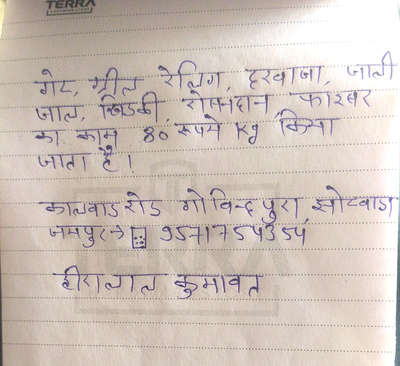 TERRA
गेट, ग्रील रेलिंग, दरवाजा, जाली
जाल, खिडकी, रोशनदान, फाइबर
का काम 80 रूपये Kg किया
जाता है।
कालवाड रोड गोविन्दपुरा, झोटवाडा
जयपुर→ 9571754354
हीरालाल कुमावत